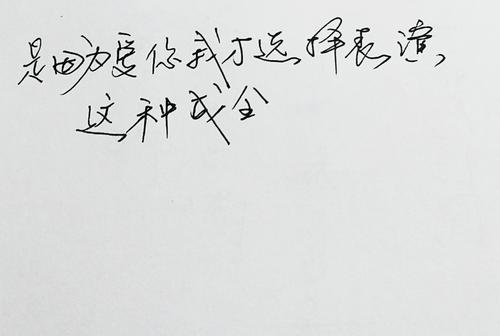 是因为爱你我才选择表演,
这种成全